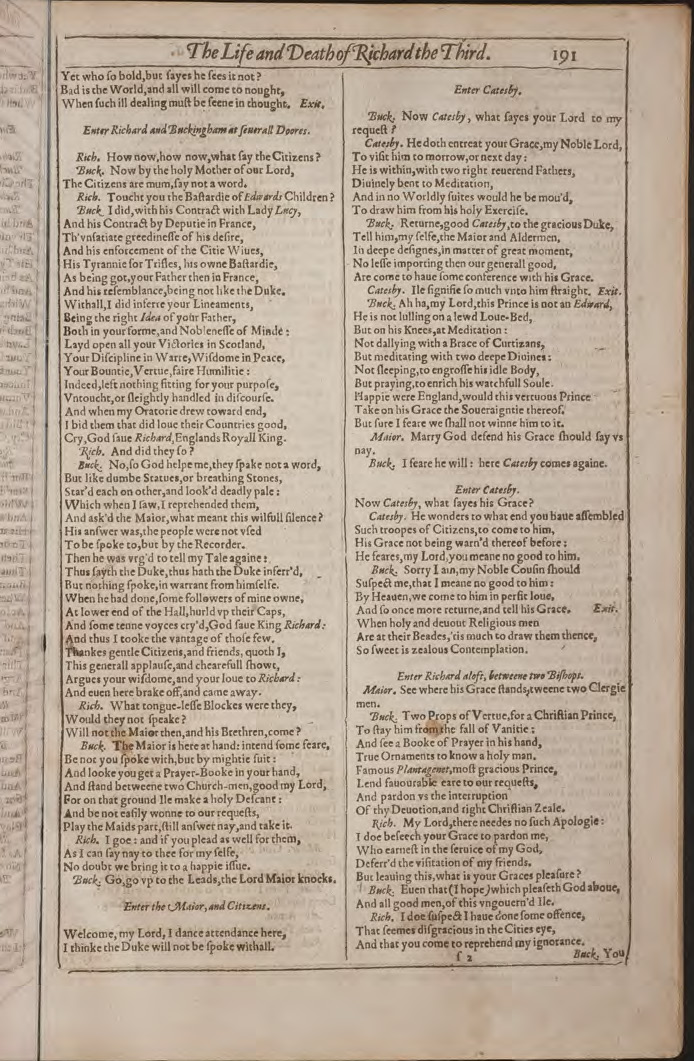 The Life and Death of Richard the Third. 191
Yet who ſo bold,but ſayes he ſees it not?
Bad is the World,and all will come to nought,
When ſuch ill dealing muſt be ſeene in thought. Exit.
Enter Richard and Buckingham at ſeuerall Doores.
Rich. How now,how now,what ſay the Citizens?
Buck. Now by the holy Mother of our Lord,
The Citizens are mum,ſay not a word.
Rich. Toucht you the Baſtardie of Edwards Children?
Buck. I did,with his Contract with Lady Lucy,
And his Contract by Deputie in France,
Th'vnſatiate greedineſſe of his deſire,
And his enforcement of the Citie Wiues,
His Tyrannie for Trifles, his owne Baſtardie,
As being got,your Father then in France,
And his reſemblance,being not like the Duke.
Withall,I did inferre your Lineaments,
Being the right Idea of your Father,
Both in your forme,and Nobleneſſe of Minde:
Layd open all your Victories in Scotland,
Your Diſcipline in Warre,Wiſdome in Peace,
Your Bountie,Vertue,faire Humilitie:
Indeed,left nothing fitting for your purpoſe,
Vntoucht,or ſleightly handled in diſcourſe.
And when my Oratorie drew toward end,
I bid them that did loue their Countries good,
Cry,God ſaue Richard,Englands Royall King.
Rich. And did they ſo?
Buck. No,ſo God helpe me,they ſpake not a word,
But like dumbe Statues,or breathing Stones,
Star'd each on other,and look'd deadly pale:
Which when I ſaw,I reprehended them,
And ask'd the Maior,what meant this wilfull ſilence?
His anſwer was,the people were not vſed
To be ſpoke to,but by the Recorder.
Then he was vrg'd to tell my Tale againe:
Thus ſayth the Duke,thus hath the Duke inferr'd,
But nothing ſpoke,in warrant from himſelfe.
When he had done,ſome followers of mine owne,
At lower end of the Hall,hurld vp their Caps,
And ſome tenne voyces cry'd,God ſaue King Richard:
And thus I tooke the vantage of thoſe few.
Thankes gentle Citizens,and friends, quoth I,
This generall applauſe,and chearefull ſhowt,
Argues your wiſdome,and your loue to Richard:
And euen here brake off,and came away.
Rich. What tongue-leſſe Blockes were they,
Would they not ſpeake?
Will not the Maior then,and his Brethren,come?
Buck. The Maior is here at hand: intend ſome feare,
Be not you ſpoke with,but by mightie ſuit:
And looke you get a Prayer-Booke in your hand,
And ſtand betweene two Church-men,good my Lord,
For on that ground Ile make a holy Deſcant:
And be not eaſily wonne to our requeſts,
Play the Maids part,ſtill anſwer nay,and take it.
Rich. I goe: and if you plead as well for them,
As I can ſay nay to thee for my ſelfe,
No doubt we bring it to a happie iſſue.
Buck. Go,go vp to the Leads,the Lord Maior knocks.
Enter the Maior, and Citizens.
Welcome, my Lord, I dance attendance here,
I thinke the Duke will not be ſpoke withall.
Enter Catesby.
Buck. Now Catesby, what ſayes your Lord to my
requeſt?
Catesby. He doth entreat your Grace,my Noble Lord,
To viſit him to morrow,or next day:
He is within,with two right reuerend Fathers,
Diuinely bent to Meditation,
And in no Worldly ſuites would he be mou'd,
To draw him from his holy Exerciſe.
Buck. Returne,good Catesby,to the gracious Duke,
Tell him,my ſelfe,the Maior and Aldermen,
In deepe deſignes,in matter of great moment,
No leſſe importing then our generall good,
Are come to haue ſome conference with his Grace.
Catesby. Ile ſignifie ſo much vnto him ſtraight. Exit.
Buck. Ah ha,my Lord,this Prince is not an Edward,
He is not lulling on a lewd Loue-Bed,
But on his Knees,at Meditation:
Not dallying with a Brace of Curtizans,
But meditating with two deepe Diuines:
Not ſleeping,to engroſſe his idle Body,
But praying,to enrich his watchfull Soule.
Happie were England,would this vertuous Prince
Take on his Grace the Soueraigntie thereof.
But ſure I feare we ſhall not winne him to it.
Maior. Marry God defend his Grace ſhould ſay vs
nay.
Buck. I feare he will: here Catesby comes againe.
Enter Catesby.
Now Catesby, what ſayes his Grace?
Catesby. He wonders to what end you haue aſſembled
Such troopes of Citizens,to come to him,
His Grace not being warn'd thereof before:
He feares,my Lord,you meane no good to him.
Buck. Sorry I am,my Noble Couſin ſhould
Suſpect me,that I meane no good to him:
By Heauen,we come to him in perfit loue,
And ſo once more returne,and tell his Grace. Exit.
When holy and deuout Religious men
Are at their Beades,'tis much to draw them thence,
So ſweet is zealous Contemplation.
Enter Richard aloft, betweene two Biſhops.
Maior. See where his Grace ſtands,tweene two Clergie
men.
Buck. Two Props of Vertue,for a Chriſtian Prince,
To ſtay him from the fall of Vanitie:
And ſee a Booke of Prayer in his hand,
True Ornaments to know a holy man.
Famous Plantagenet,moſt gracious Prince,
Lend fauourable eare to our requeſts,
And pardon vs the interruption
Of thy Deuotion,and right Chriſtian Zeale.
Rich. My Lord,there needes no ſuch Apologie:
I doe beſeech your Grace to pardon me,
Who earneſt in the ſeruice of my God,
Deferr'd the viſitation of my friends.
But leauing this,what is your Graces pleaſure?
Buck. Euen that (I hope) which pleaſeth God aboue,
And all good men,of this vngouern'd Ile.
Rich. I doe ſuſpect I haue done ſome offence,
That ſeemes diſgracious in the Cities eye,
And that you come to reprehend my ignorance.
ſ 2 Buck. You